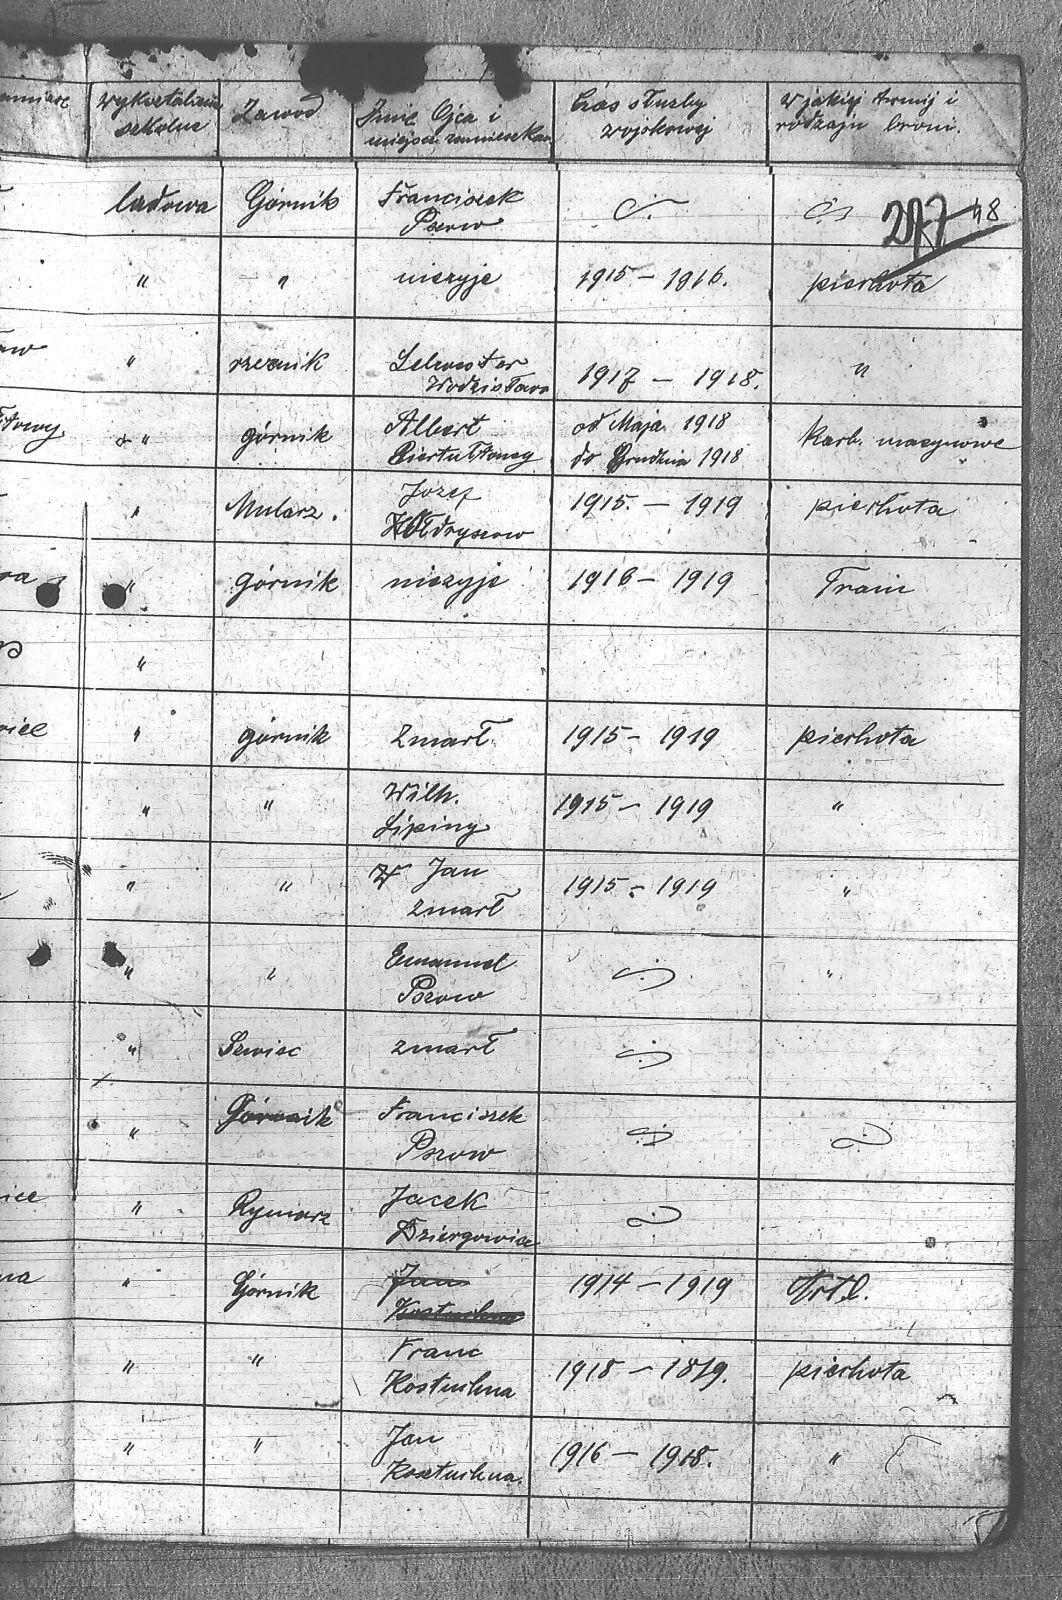 wykształcenie szkolne Zawód Imie Ojca i miejsce zamieszkan Czas służby wojskowej w jakiej Armij i rodzaju broni.
ludowa Górnik Franciszek Pszow 277 48
" " nieżyje 1915 – 1916. piechota
rzeznik Wodzisław 1917 – 1918. "
" górnik Albert od Maja 1918 do Grudnia 1918 Karb. maszynowe
" Mularz. Jozef 1915. – 1919 piechota
" górnik nieżyje 1916 – 1919 Train
"
" górnik zmarł 1915 – 1919 piechota
" " Wilh. 1915 – 1919 "
" " Jan zmarł 1915 – 1919 "
" " Emanuel Pszow "
" Szwiec zmarł
" Górnik Franciszek Pszow
" Rymarz Jacek Dziergowice
" Górnik Jan Kostuchna 1914 – 1919 Artl.
" " Franc Kostuchna 1918 – 1819. piechota
" " Jan Kostuchna 1916 – 1918. "